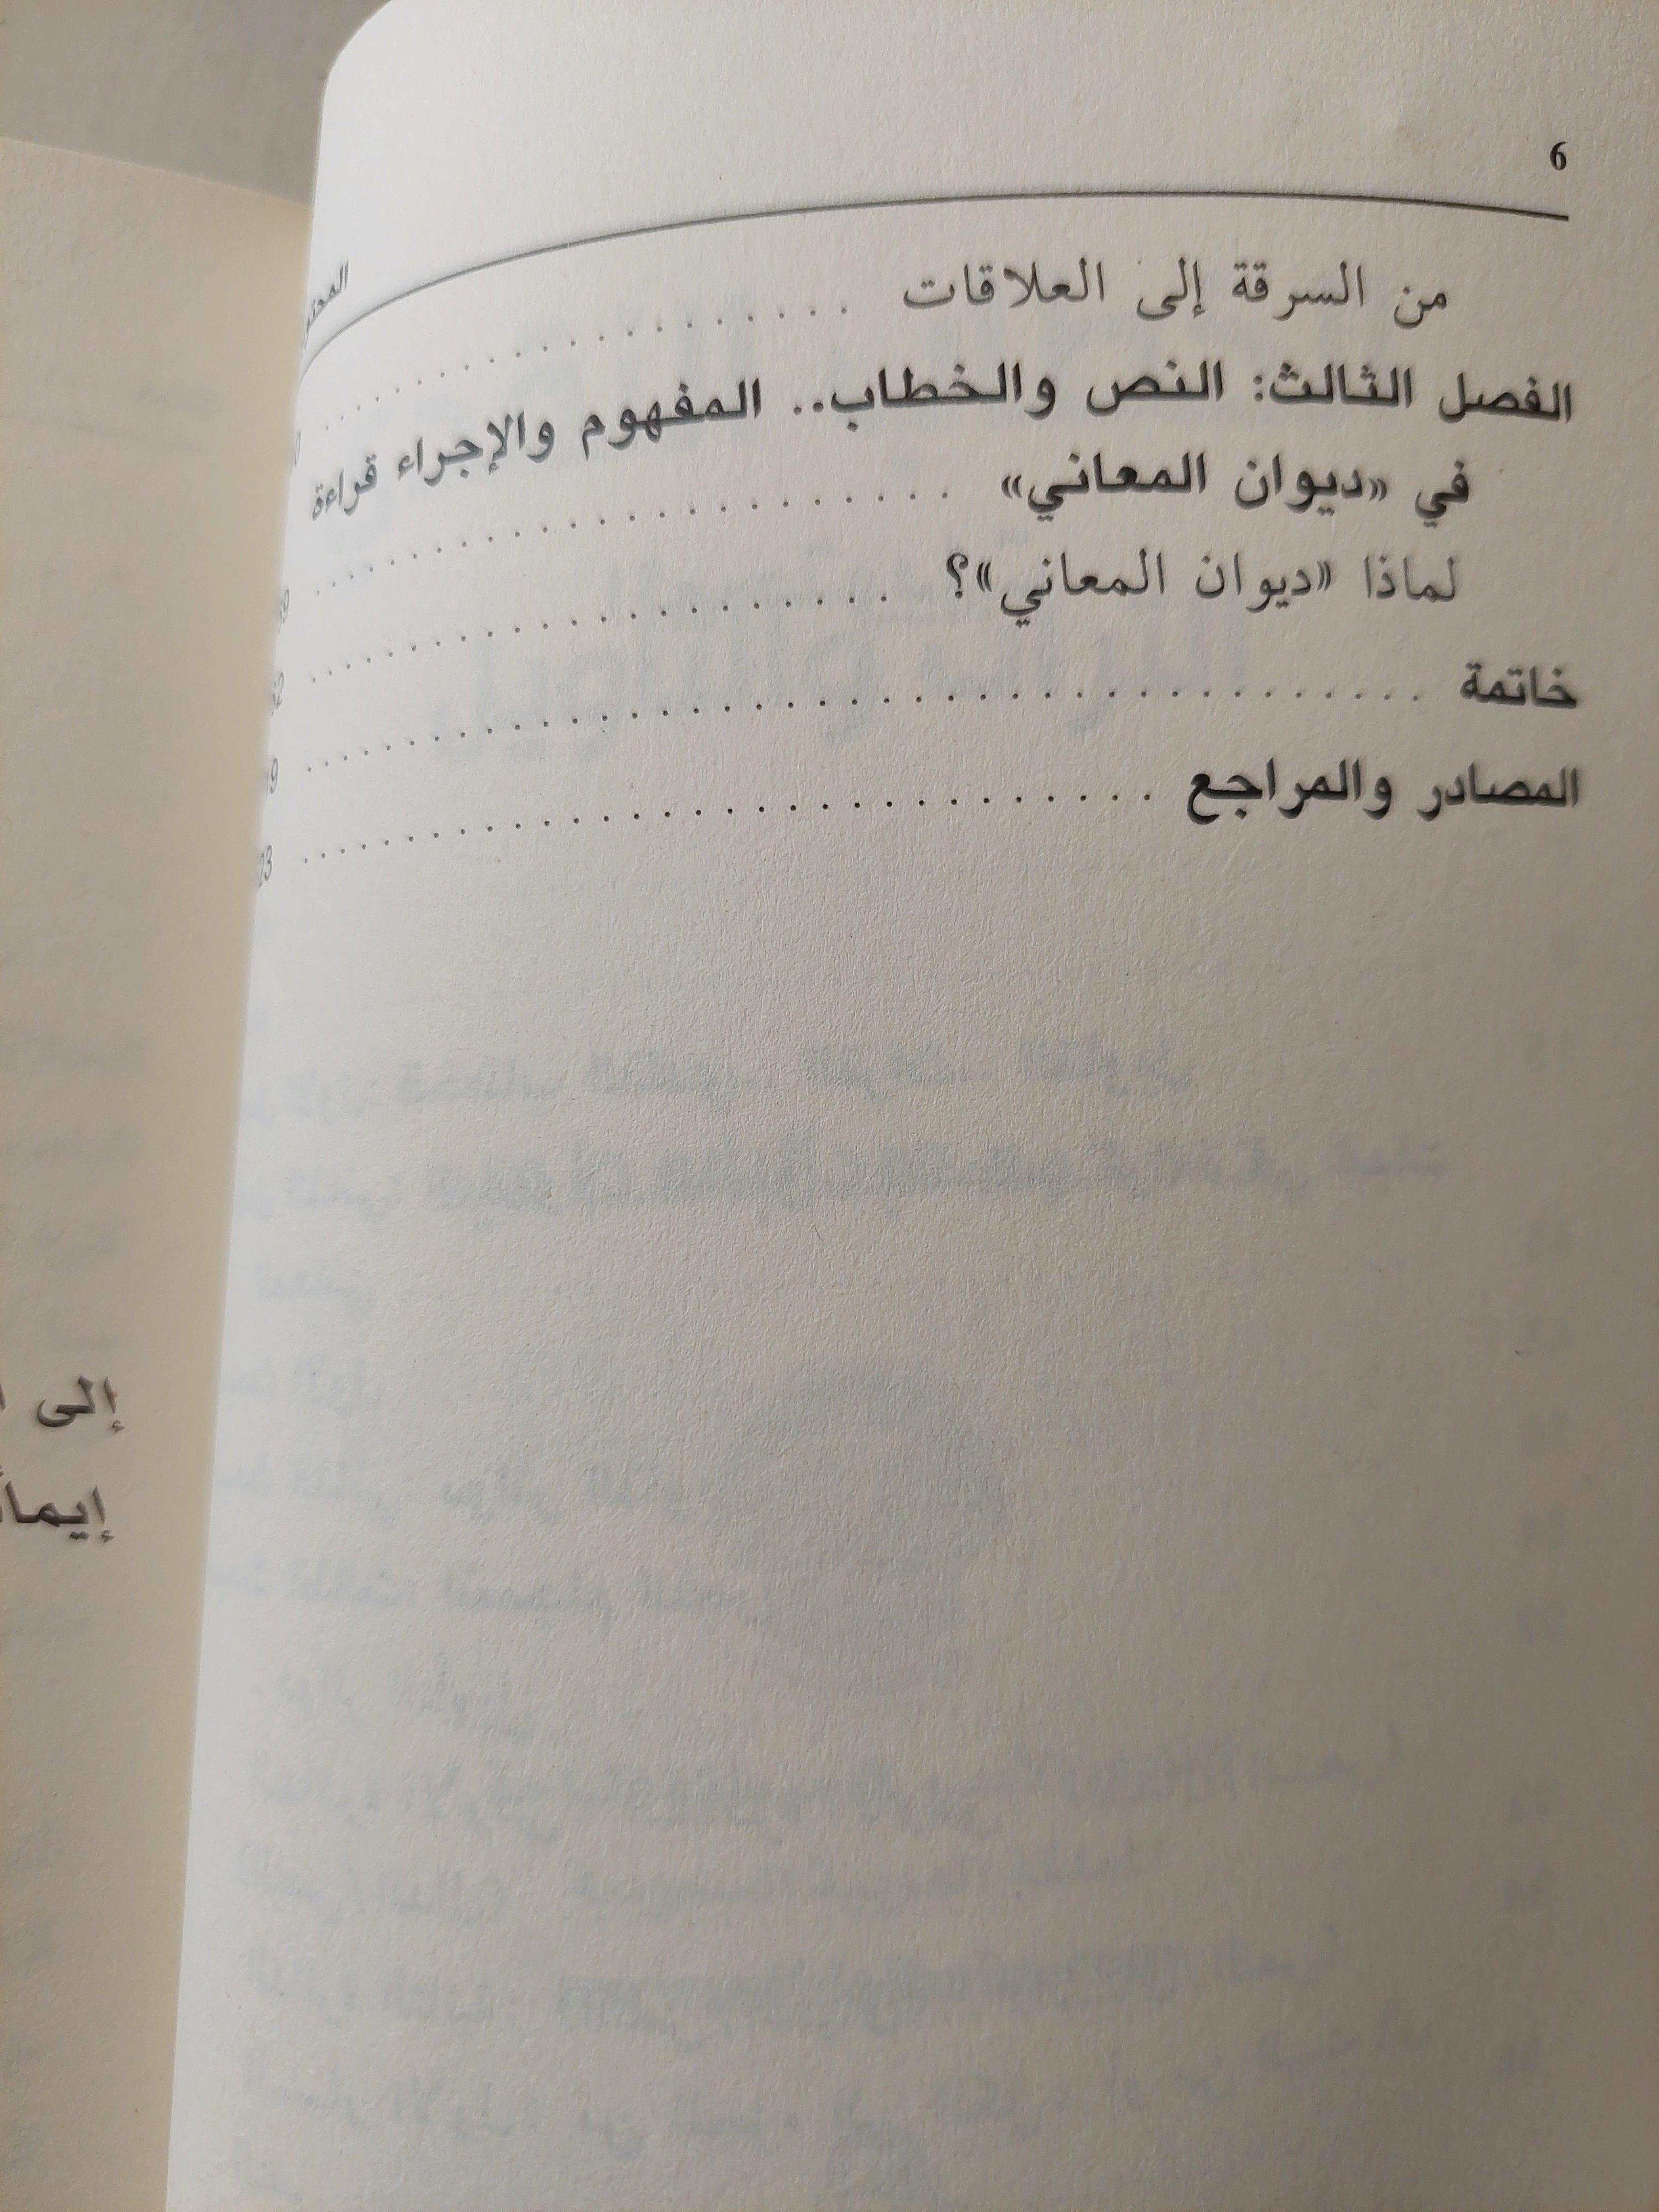 6
من السرقة إلى العلاقات . . . . . . . . . . . . . . . . . . . .
الفصل الثالث: النص والخطاب.. المفهوم والإجراء قراءة
في «ديوان المعاني» . . . . . . . . . . . . . . . . . . . . . .
لماذا «ديوان المعاني»؟ . . . . . . . . . . . . . . . . . . . .
خاتمة . . . . . . . . . . . . . . . . . . . . . . . . . . . . . . . . . .
المصادر والمراجع . . . . . . . . . . . . . . . . . . . . . . . . 23
إلى